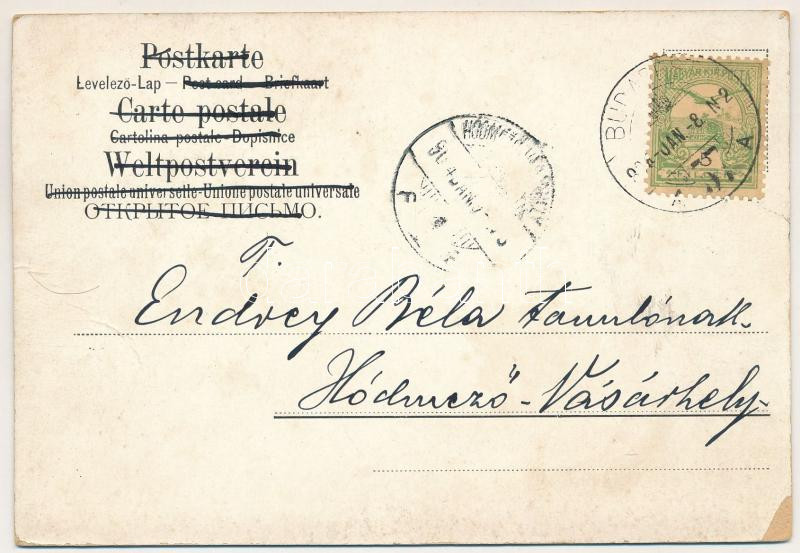 Postkarte
Levelező-Lap – Post card – Briefkaart
Carte postale
Cartolina postale - Dopisnice
Weltpostverein
Union postale universelle - Unione postale universale
ОТКРЫТОЕ ПИСЬМО.
MAGYAR KIR. POSTA
JAN.-8. N2
A
T.
Endrey Béla Tanulónak
Hódmező-Vásárhely